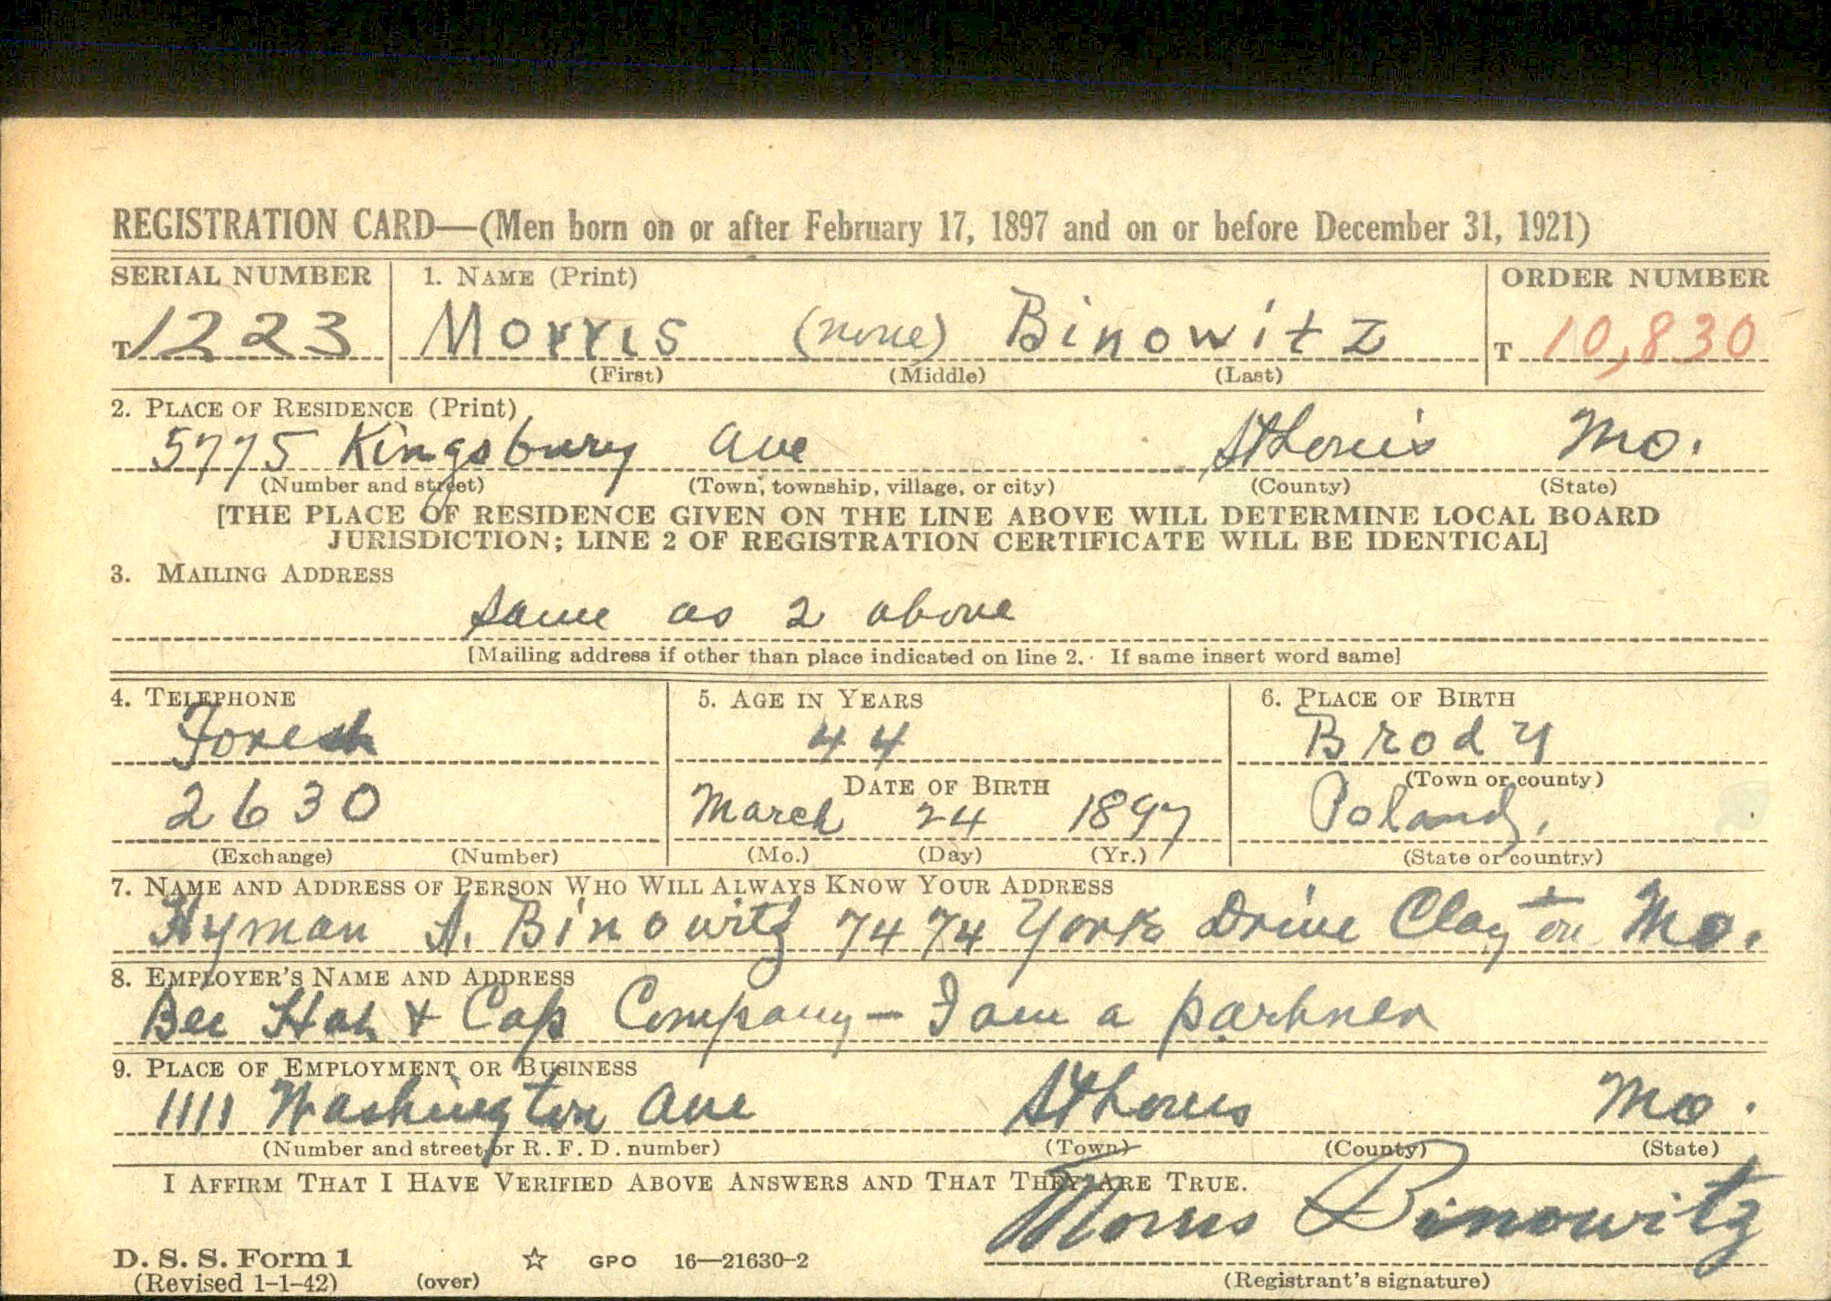 REGISTRATION CARD—(Men born on or after February 17, 1897 and on or before December 31, 1921)
SERIAL NUMBER 1. NAME (Print) ORDER NUMBER
T 1223 Morris (none) Binowitz T 10,830
(First) (Middle) (Last)
2. PLACE OF RESIDENCE (Print)
5775 Kingsbury Ave St Louis Mo.
(Number and street) (Town, township, village, or city) (County) (State)
[THE PLACE OF RESIDENCE GIVEN ON THE LINE ABOVE WILL DETERMINE LOCAL BOARD
JURISDICTION; LINE 2 OF REGISTRATION CERTIFICATE WILL BE IDENTICAL]
3. MAILING ADDRESS
Same as 2 above
[Mailing address if other than place indicated on line 2. If same insert word same]
4. TELEPHONE 5. AGE IN YEARS 6. PLACE OF BIRTH
Forest 44 Brody
DATE OF BIRTH (Town or county)
2630 March 24 1897 Poland,
(Exchange) (Number) (Mo.) (Day) (Yr.) (State or country)
7. NAME AND ADDRESS OF PERSON WHO WILL ALWAYS KNOW YOUR ADDRESS
Hyman A. Binowitz 7474 York Drive Clayton Mo.
8. EMPLOYER'S NAME AND ADDRESS
Bee Hat & Cap Company – I am a partner
9. PLACE OF EMPLOYMENT OR BUSINESS
1111 Washington Ave St Louis Mo.
(Number and street or R. F. D. number) (Town) (County) (State)
I AFFIRM THAT I HAVE VERIFIED ABOVE ANSWERS AND THAT THEY ARE TRUE.
Morris Binowitz
D. S. S. Form 1 ☆ GPO 16—21630-2
(Revised 1-1-42) (over) (Registrant's signature)